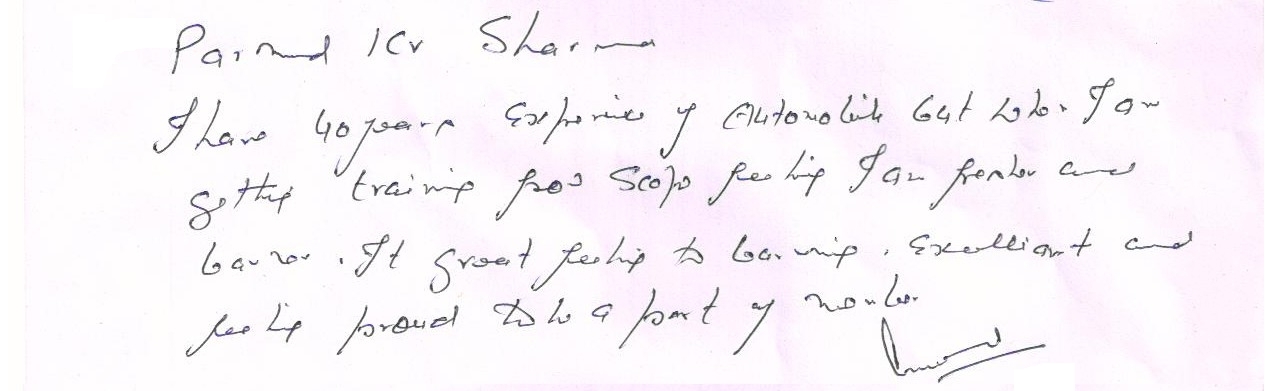 Parmod Kr Sharma
I have 40 years Experience of Automobile but when I am
getting training from Scope feeling I am fresher and
learner. It great feeling to learning. Excelliant and
feeling proud to be a part of member